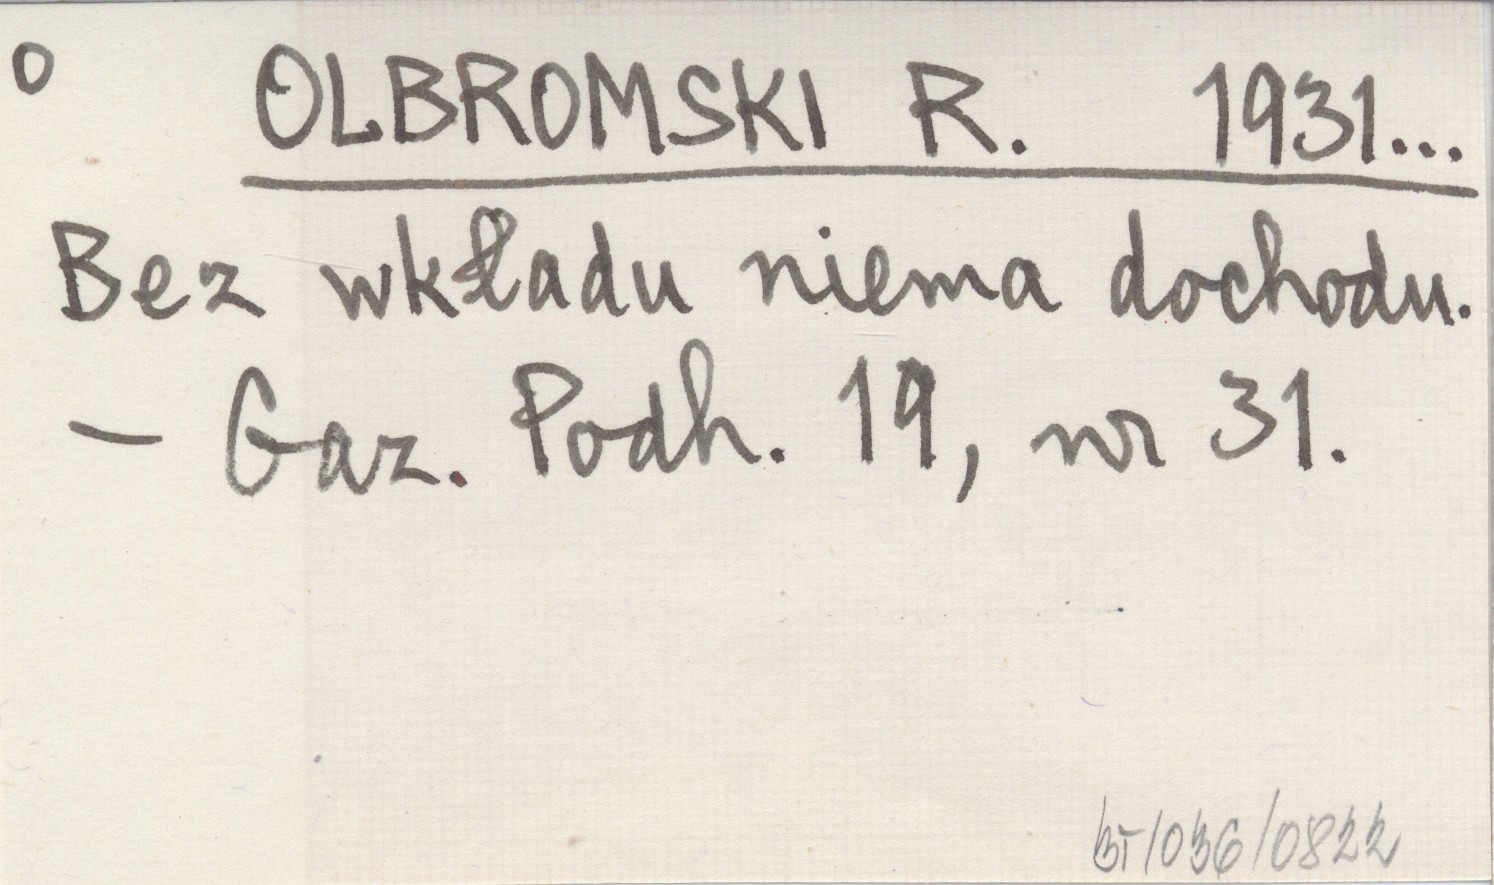 o OLBROMSKI R. 1931...
Bez wkładu niema dochodu.
- Gaz. Podh. 19, nr 31.
/036/0822